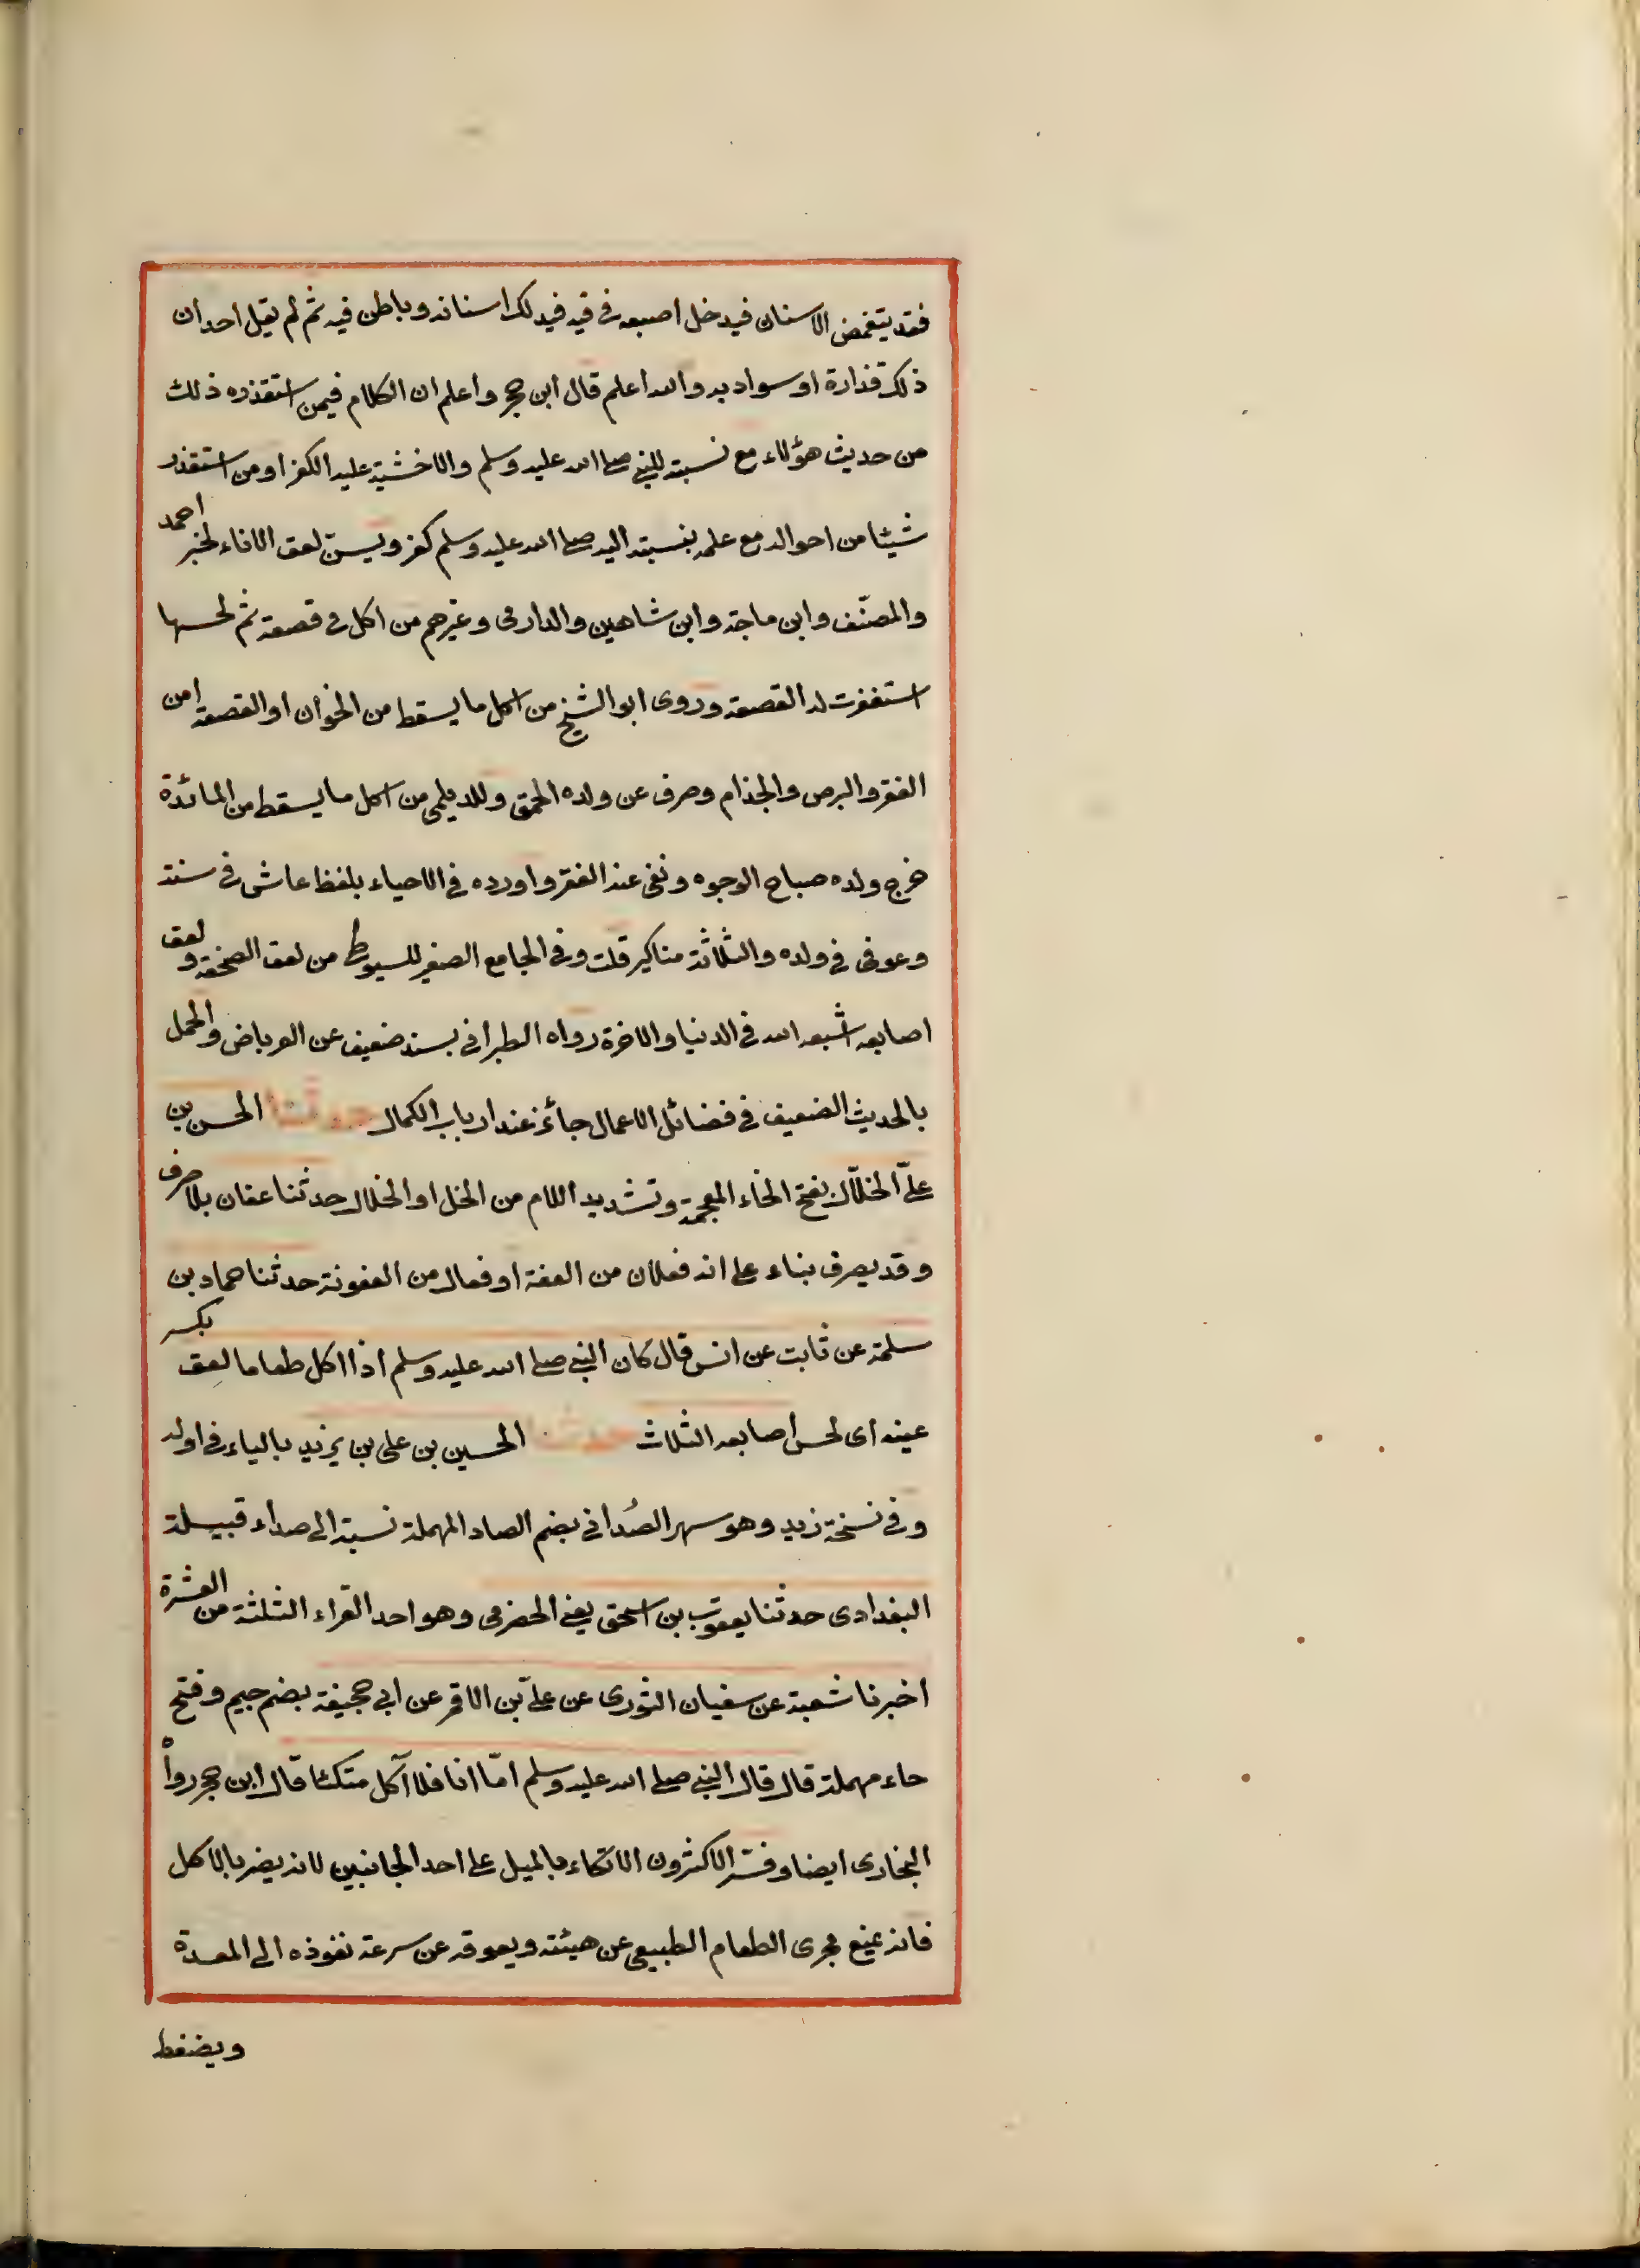 فقد يتغمض الاسنان فيدخل اصبعه في فيه فيدلك اسنانه وباطن فيه ثم لم يقل احد ان
ذلك قذارة او سواد به والله اعلم قال ابن حجر واعلم ان الكلام فيمن استقذره ذلك
من حديث هؤلاء مع نسبته للنبي صلى الله عليه وسلم والا خشية عليه الكفر او من استقذر
شيئا من احواله مع علمه بنسبته اليه صلى الله عليه وسلم كفر ويسنّ لعق الاناء لخبر احمد
والمصنّف وابن ماجة وابن شاهين والدارمى وغيرهم من اكل في قصعة ثم لحسها
استغفرت له القصعة وروى ابو الشيخ من اكل ما يسقط من الخوان او القصعة امن
الفقر والبرص والجذام وصرف عن ولده الحمق وللديلمى من اكل ما يسقط من المائدة
خرج ولده صباح الوجوه ونفى عنه الفقر واورده في الاحياء بلفظ عاش في سنته
وعوفى في ولده والثلاثة مناكير قلت وفي الجامع الصغير للسيوطي من لعق الصحفة ولعق
اصابعه اشبعه الله في الدنيا والاخرة رواه الطبراني بسند ضعيف عن العرباض والحمل
بالحديث الضعيف في فضائل الاعمال جائز عند ارباب الكمال حدثنا الحسن بن
علىّ الخلّال بفتح الخاء المعجمة وتشديد اللام من الخل او الخلال حدثنا عفان بلا صرف
وقد يصرف بناء على انه فعلان من العفة او فعال من العفونة حدثنا حماد بن
سلمة عن ثابت عن انس قال كان النبي صلى الله عليه وسلم اذا اكل طعاما لعِق بكسر
عينه اى لحس اصابعه الثلاث حدثنا الحسين بن على بن يزيد بالياء في اوله
وفي نسخة زيد وهو سهو الصُدائي بضم الصاد المهملة نسبة الى صداء قبيلة
البغدادى حدثنا يعقوب بن اسحق يعني الحضرمى وهو احد القراء الثلثة من العشرة
اخبرنا شعبة عن سفيان الثورى عن علىّ بن الاقمر عن ابي جحيفة بضم جيم وفتح
حاء مهملة قال قال النبي صلى الله عليه وسلم امّا انا فلا آكل متكئا قال ابن حجر رواه
البخارى ايضا وفسّر الاكثرون الاتكاء بالميل على احد الجانبين لانه يضر بالاكل
فانه يمنع مجرى الطعام الطبيعي عن هيئته ويعوقه عن سرعة نفوذه الى المعدة
ويضغط